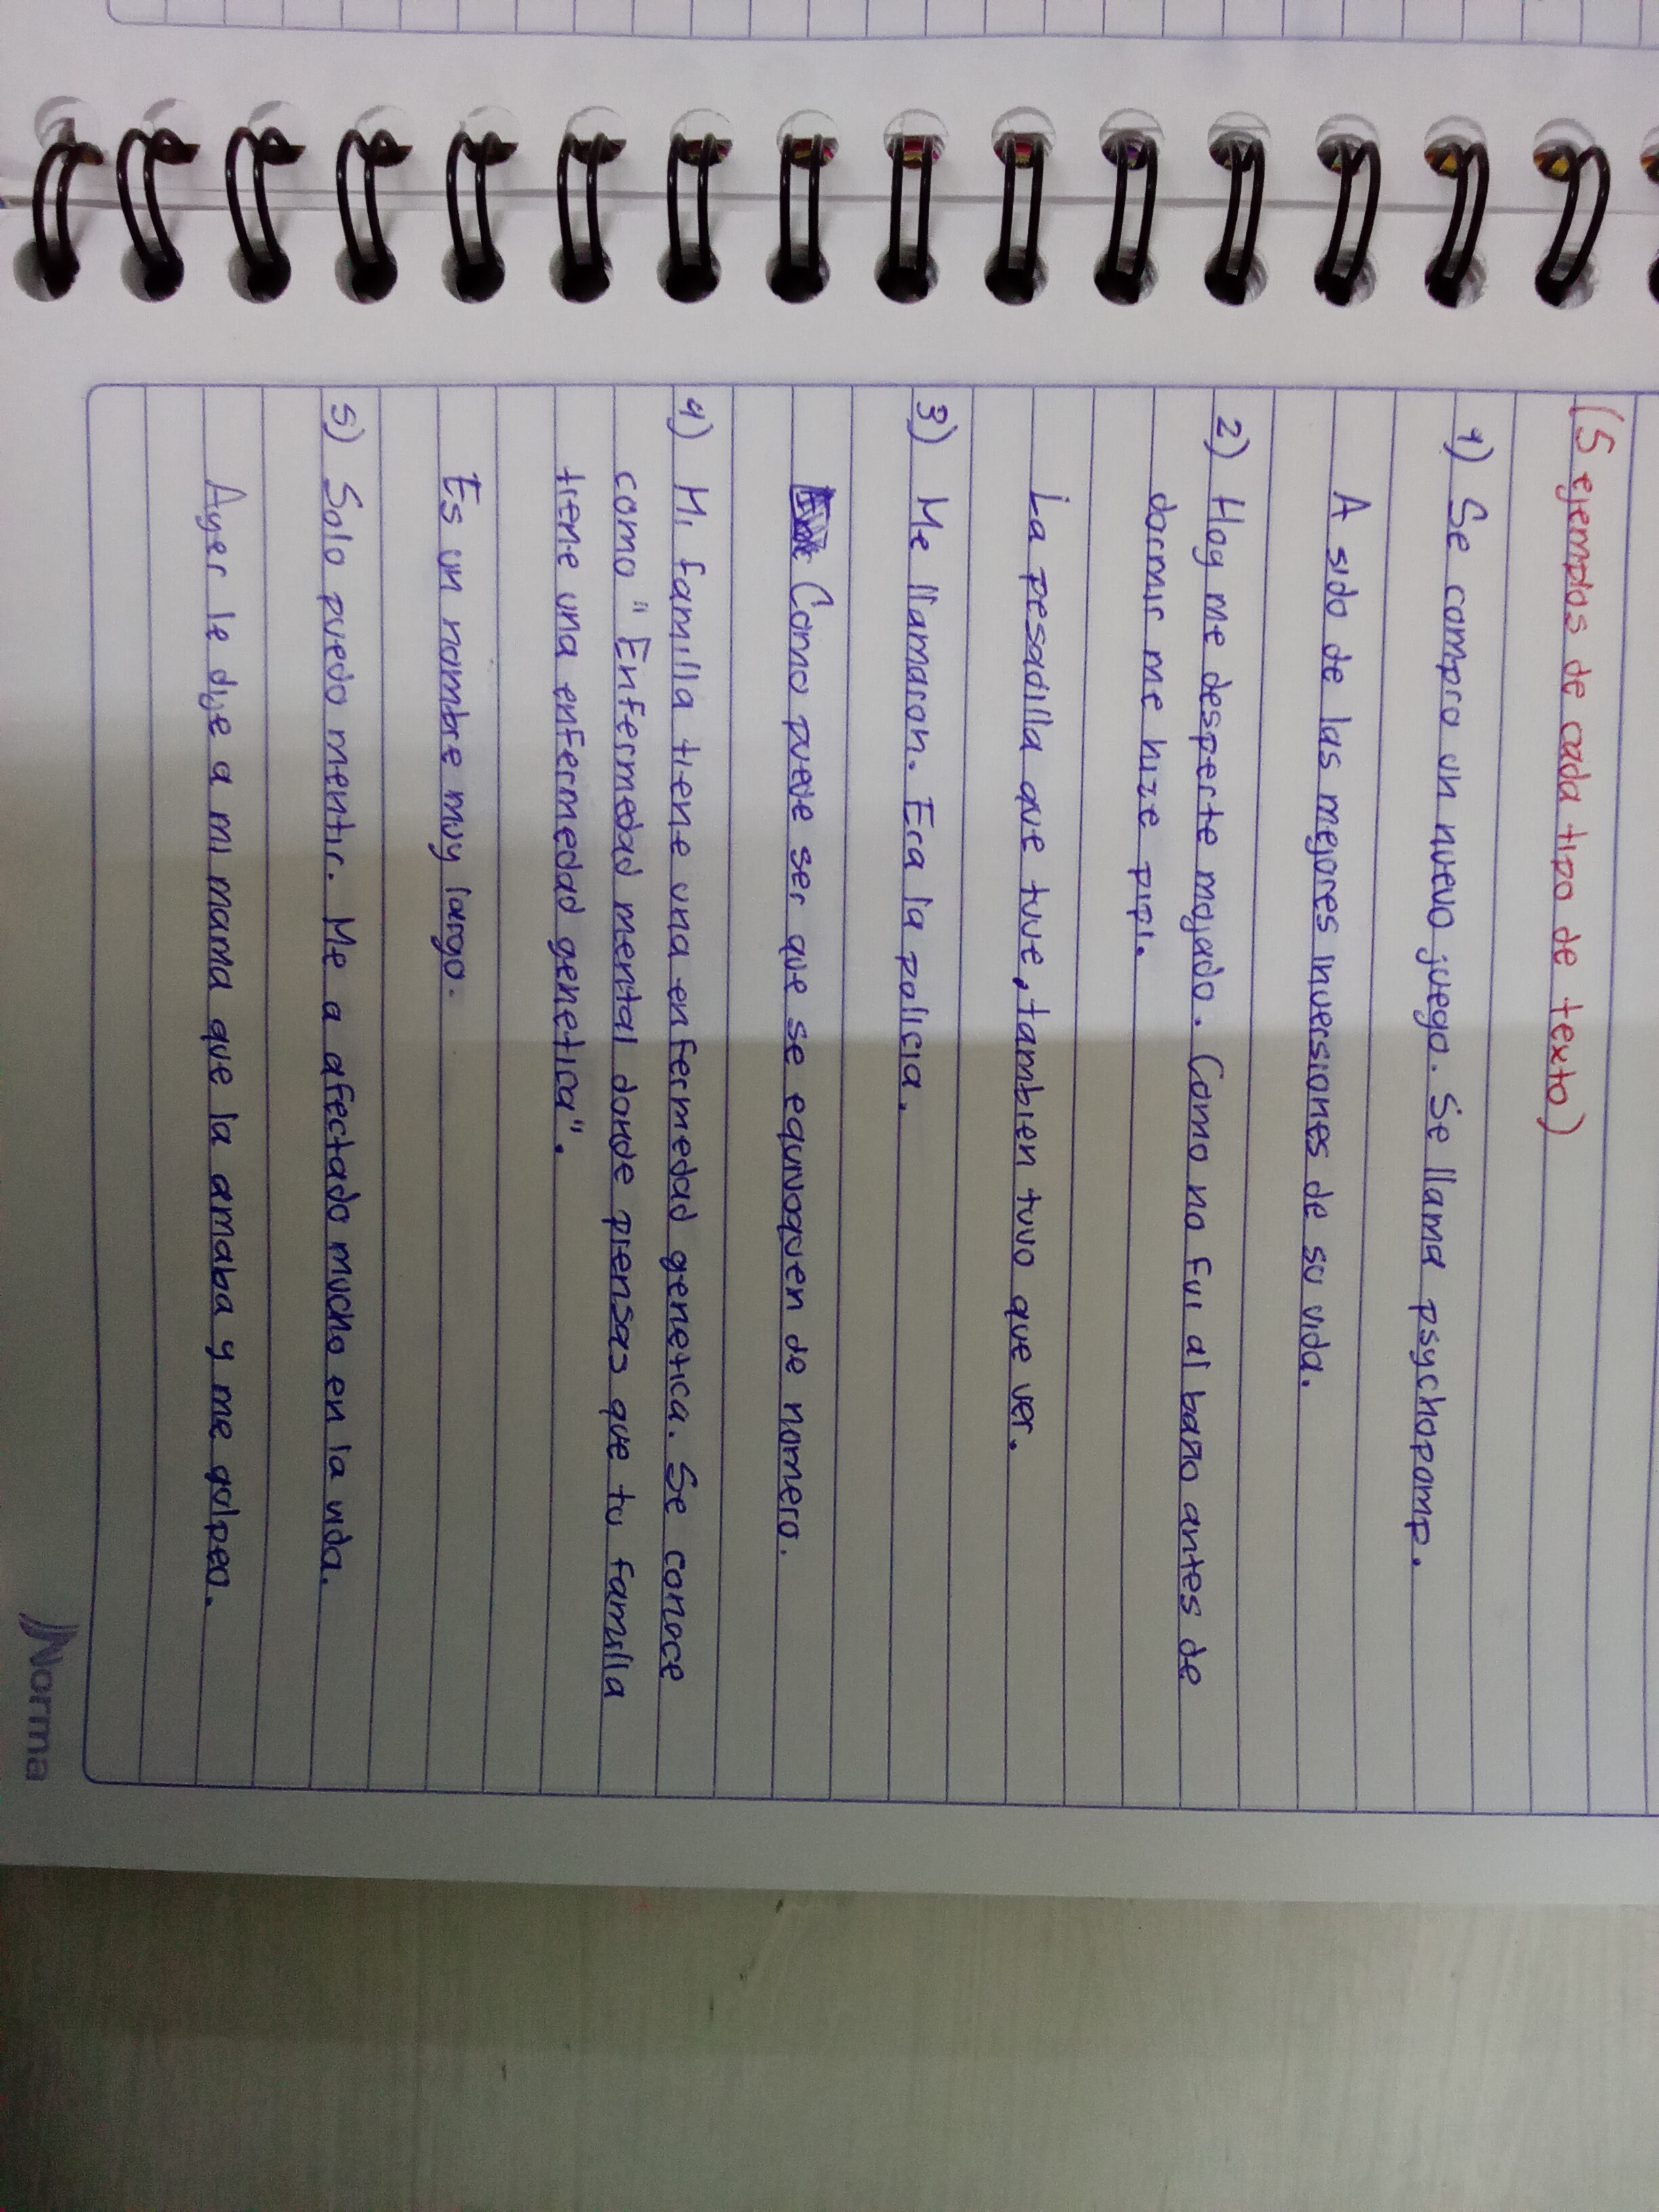 (5 ejemplos de cada tipo de texto)
1) Se compro un nuevo juego. Se llama psychopomp.
A sido de las mejores inversiones de su vida.
2) Hoy me desperte mojado. Como no fui al baño antes de
dormir me hize pipi.
La pesadilla que tuve, tambien tuvo que ver.
3) Me llamaron. Era la policia.
Como puede ser que se equivoquen de nomero.
4) Mi familia tiene una enfermedad genetica. Se conoce
como "Enfermedad mental donde piensas que tu familia
tiene una enfermedad genetica".
Es un nombre muy largo.
5) Solo puedo mentir. Me a afectado mucho en la vida.
Ayer le dije a mi mama que la amaba y me golpeo.
Norma